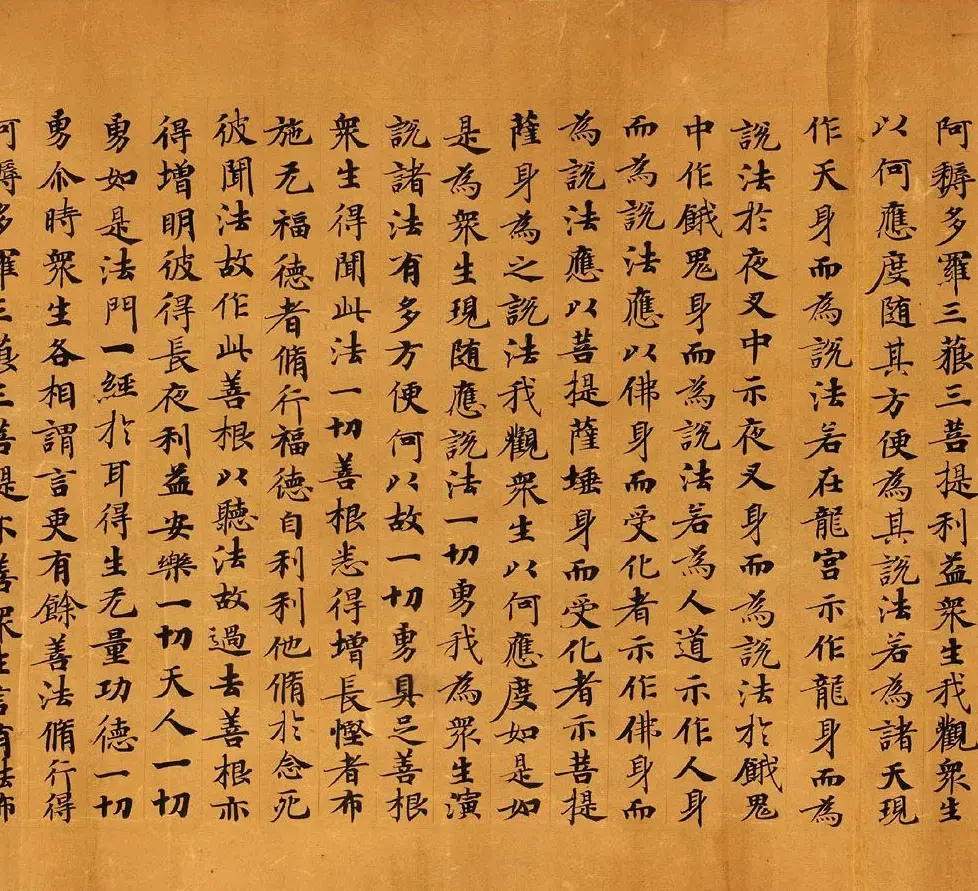 阿耨多羅三藐三菩提利益衆生我觀衆生
以何應度随其方便為其説法若為諸天現
作天身而為説法若在龍宮示作龍身而為
説法於夜叉中示夜叉身而為説法於餓鬼
中作餓鬼身而為説法若為人道示作人身
而為説法應以佛身而受化者示作佛身而
為説法應以菩提薩埵身而受化者示菩提
薩身為之説法我觀衆生以何應度如是如
是為衆生現随應説法一切勇我為衆生演
説諸法有多方便何以故一切勇具足善根
衆生得聞此法一切善根悉得增長慳者布
施无福德者脩行福德自利利他脩於念死
彼聞法故作此善根以聽法故過去善根亦
得增明彼得長夜利益安樂一切天人一切
勇如是法門一經於耳得生无量功德一切
勇尒時衆生各相謂言更有餘善法脩行得
阿耨多羅三藐三菩提不善衆生言有法布